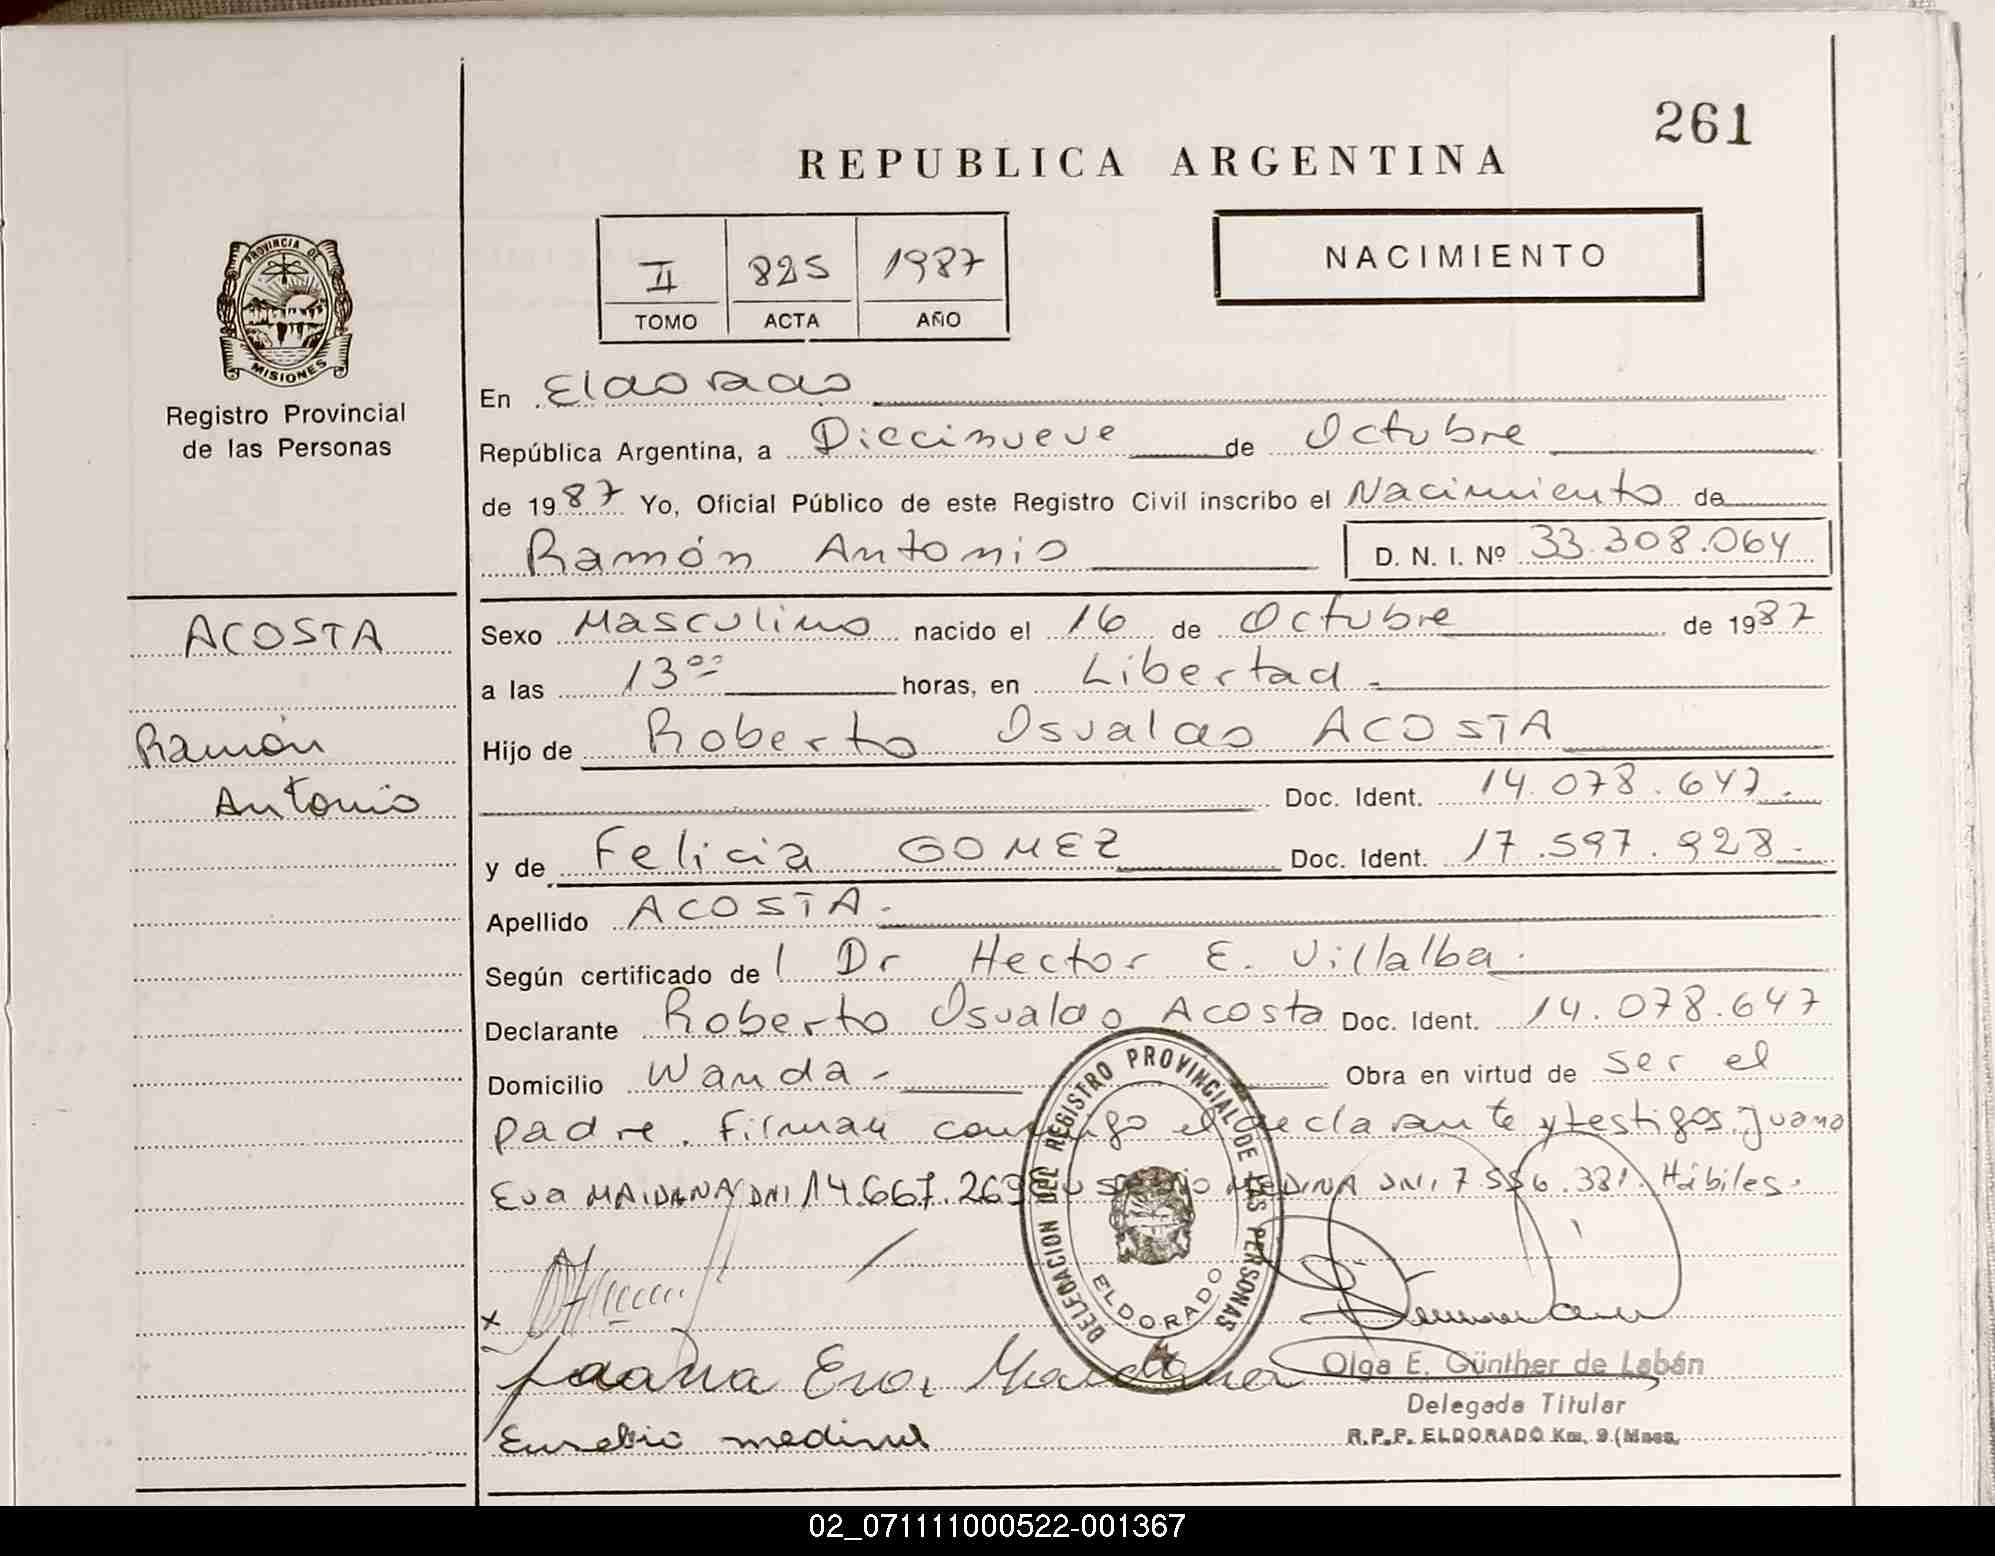 261
REPUBLICA ARGENTINA
II 825 1987
TOMO ACTA AÑO
NACIMIENTO
PROVINCIA DE
MISIONES
Registro Provincial
de las Personas
En Eldorado
República Argentina, a Diecinueve de Octubre
de 1987 Yo, Oficial Público de este Registro Civil inscribo el Nacimiento de
Ramón Antonio D. N. I. Nº 33.308.064
ACOSTA
Ramón
Antonio
Sexo Masculino nacido el 16 de Octubre de 1987
a las 13°° horas, en Libertad.
Hijo de Roberto Osvaldo ACOSTA
Doc. Ident. 14.078.647.
y de Felicia GOMEZ Doc. Ident. 17.597.928.
Apellido ACOSTA.
Según certificado de l Dr Hector E. Villalba.
Declarante Roberto Osvaldo Acosta Doc. Ident. 14.078.647
Domicilio Wanda - Obra en virtud de ser el
padre. Firman conmigo el declarante y testigos Juana
Eva MAIDANA DNI 14.667.269 Eusebio MEDINA DNI 7.556.381 Hábiles.
DELEGACION DEL REGISTRO PROVINCIAL DE LAS PERSONAS
ELDORADO
x
Juana Eva Maidana
Eusebio medina
Olga E. Günther de Labán
Delegada Titular
R.P.P. ELDORADO Km. 9 (Mnes.
02_071111000522-001367